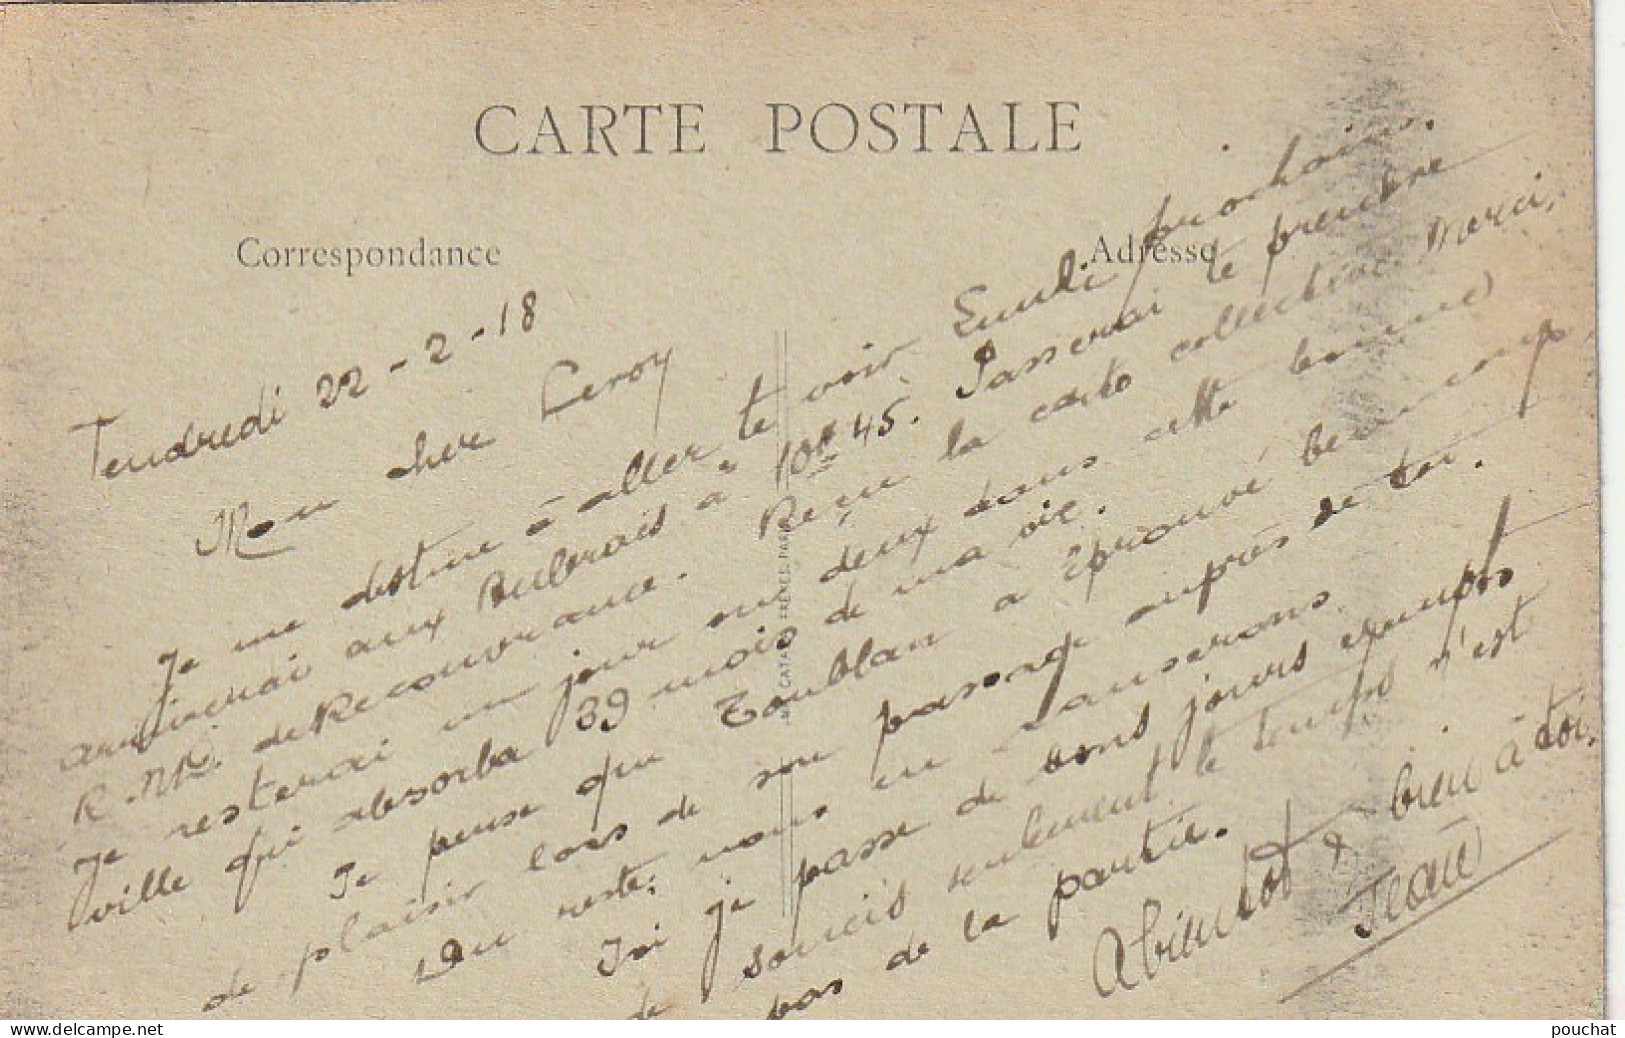 CARTE POSTALE
Correspondance
Adresse
Vendredi 22-2-18
Mon cher Leroy
Je me destine à aller te voir prochain.
arriverai aux à 10h45. Passerai te prendre
R. de Recouvrance. Reçu la carte collective. Merci.
Je resterai un jour ou deux dans cette bonne
ville qui absorba 39 mois de ma vie.
Je pense que Toublan a éprouvé beaucoup
de plaisir lors de son passage auprès de toi.
Du reste, nous en causerons.
Ici je passe de bons jours exempts
de soucis seulement le temps n'est
pas de la partie.
A bientôt & bien à toi.
Jean
CATALA FRÈRES, PARIS
pouchat
delcampe.net